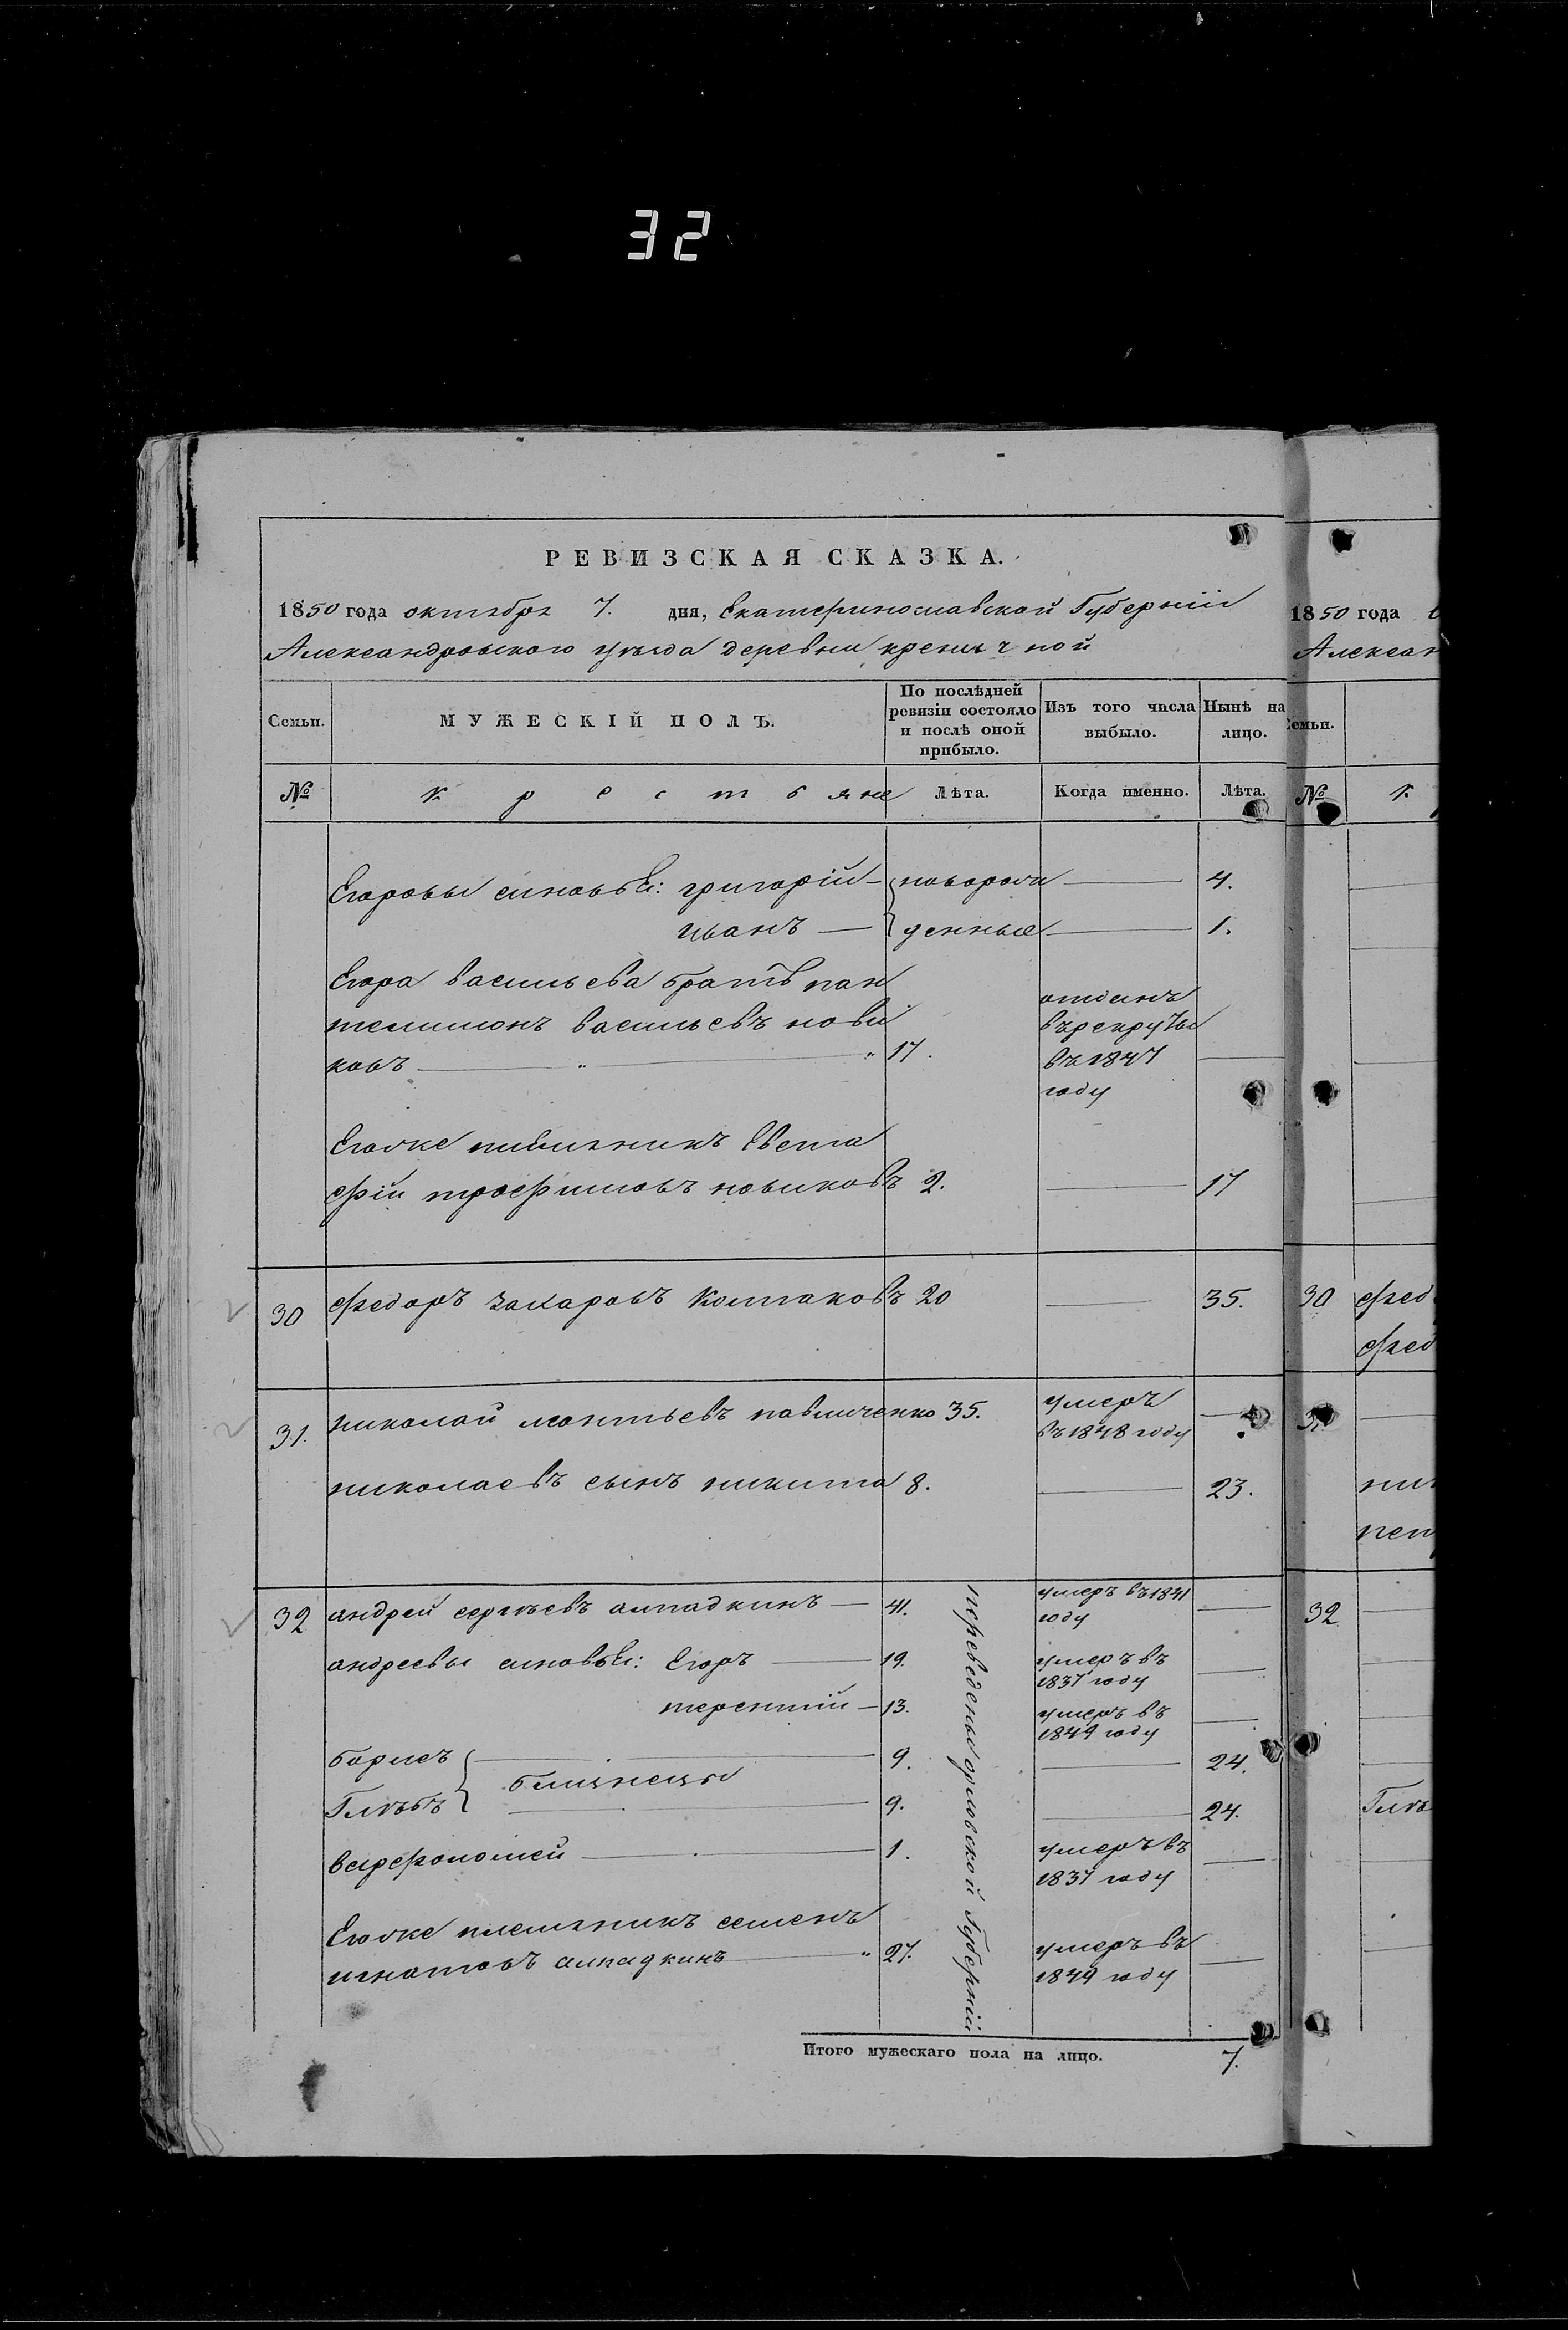 32
РЕВИЗСКАЯ СКАЗКА.
1850 года октября 7. дня, Екатеринославской Губерніи
Александровского уѣзда деревни кремичной
Семьи. МУЖЕСКІЙ ПОЛЪ. По послѣдней ревизіи состояло и послѣ оной прибыло. Изъ того числа выбыло. Нынѣ на лицо.
№ Крестьяне Лѣта. Когда именно. Лѣта.
Егоровы сыновья: григорій новорож 4.
иванъ денные 1.
Егора васильева братъ пан
телимонъ васильевъ нови отданъ въ рекруты
ковъ 17. въ 1847
году
Егоже племянникъ Евста
фій трофимовъ новиковъ 2. 17
30 федоръ захаровъ Колпаковъ 20 35.
31. николай леонтьевъ павличенко 35. умеръ въ 1848 году
николаевъ сынъ никита 8. 23.
32 андрей сергѣевъ алпадкинъ 41. умеръ въ 1841 году
андреевы сыновья: Егоръ 19. умеръ въ 1837 году
терентий 13. умеръ въ 1849 году
борисъ 9. 24.
близнецы
Глѣбъ 9. 24.
варфоломей 1. умеръ въ 1837 году
Егоже племянникъ семенъ
игнатовъ алпадкинъ 27. умеръ въ 1849 году
переведены орловской Губерніи
Итого мужескаго пола на лицо. 7.
1850 года
Алексан
Семьи.
№ К
30 фед
фед
31.
ник
пет
32
Глѣ